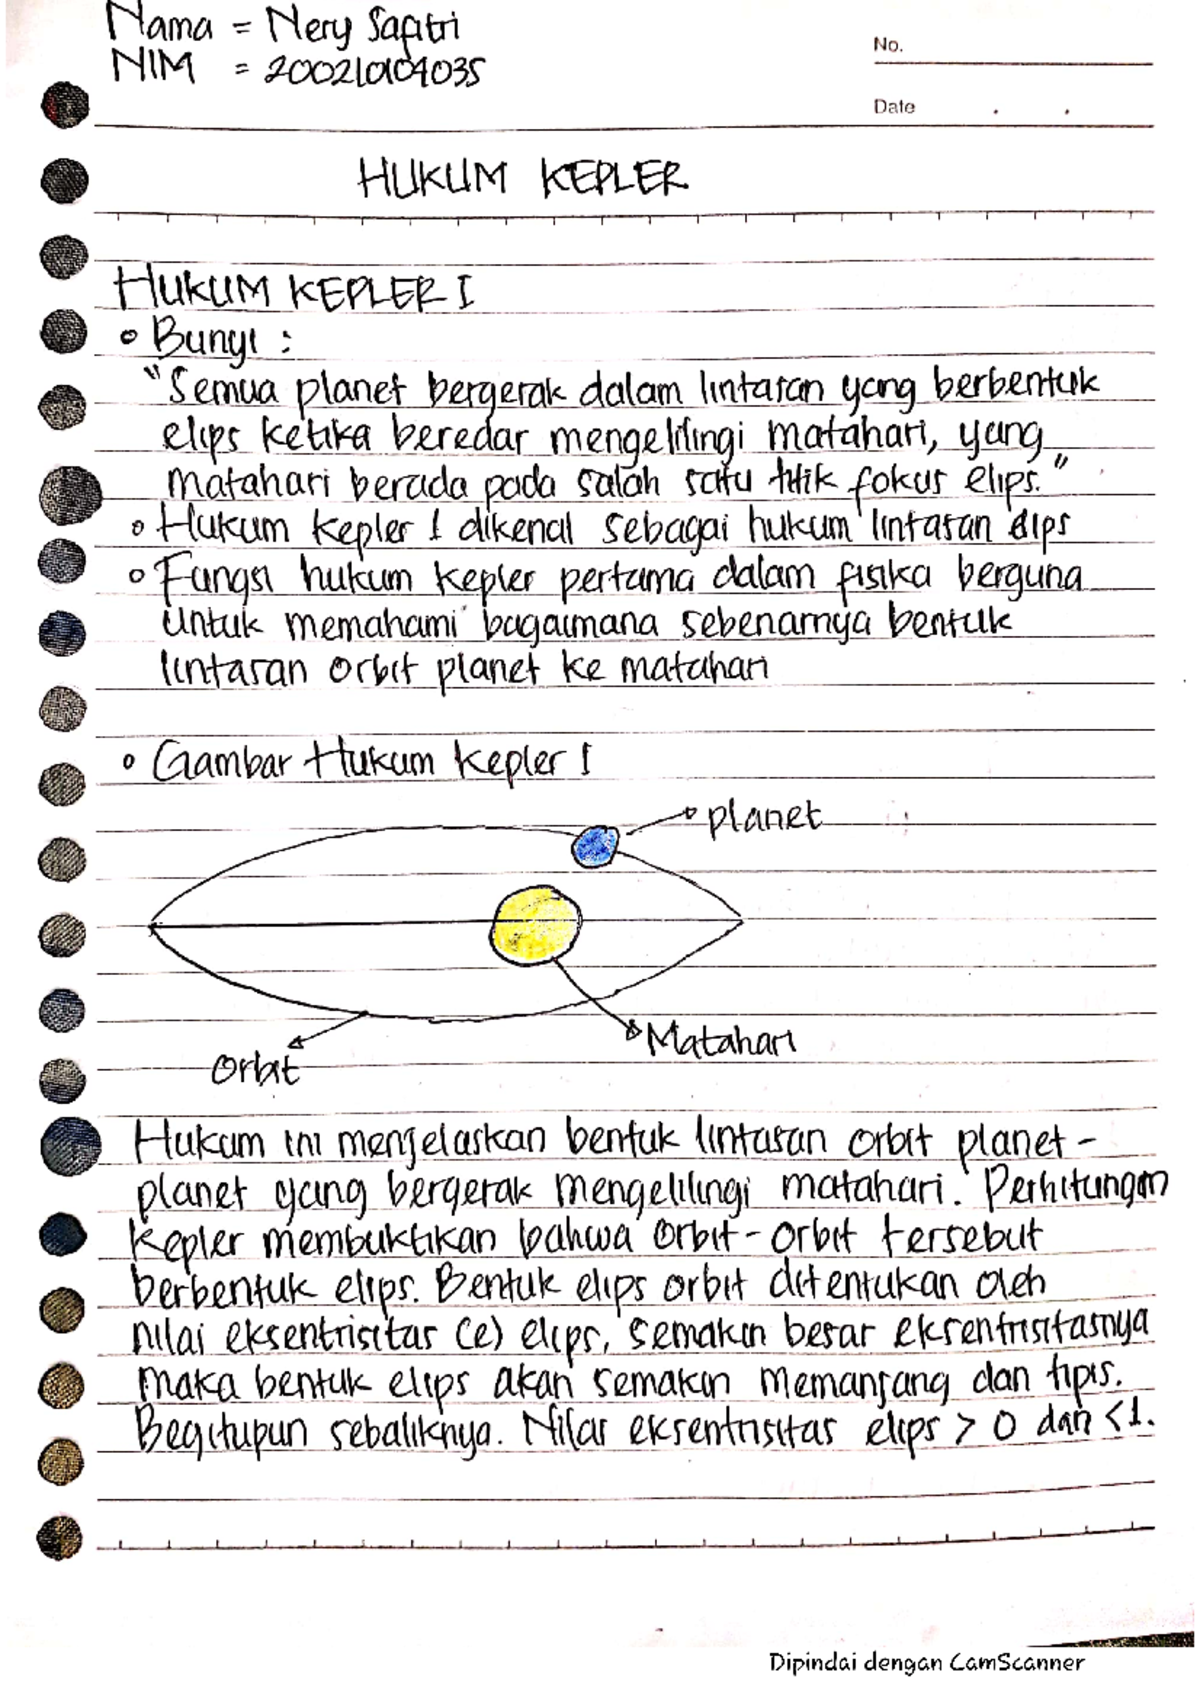 Nama = Nery Safitri
NIM = 200210104035
No.
Date . .
HUKUM KEPLER
HUKUM KEPLER I
Bunyi :
"Semua planet bergerak dalam lintasan yang berbentuk
elips ketika beredar mengelilingi matahari, yang
matahari berada pada salah satu titik fokus elips."
Hukum Kepler I dikenal sebagai hukum lintasan elips
Fungsi hukum Kepler pertama dalam fisika berguna
Untuk memahami bagaimana sebenarnya bentuk
lintasan orbit planet ke matahari
Gambar Hukum Kepler I
planet
Matahari
Orbit
Hukum ini menjelaskan bentuk lintasan orbit planet-
planet yang bergerak mengelilingi matahari. Perhitungan
Kepler membuktikan bahwa orbit-orbit tersebut
berbentuk elips. Bentuk elips orbit ditentukan oleh
nilai eksentrisitas (e) elips, semakin besar eksentrisitasnya
maka bentuk elips akan semakin memanjang dan tipis.
Begitupun sebaliknya. Nilai eksentrisitas elips > 0 dan < 1.
Dipindai dengan CamScanner